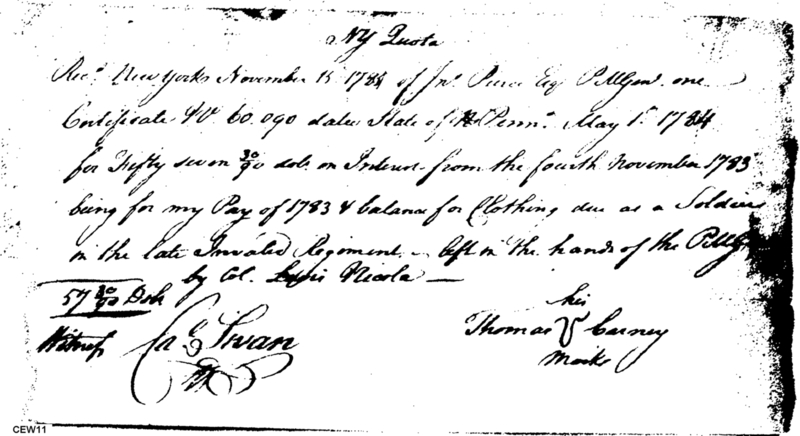 NY Quota
Recd. New York November 15 1784 of Jno. Pierce Esq P.M.Genl. one
Certificate No. 60.090 dated State of Pennª. May 1st. 1784
for Fifty seven 30/90 dolls. on Interest from the fourth November 1783
being for my Pay of 1783 & balance for Clothing due as a Soldier
in the late Invalid Regiment - left in the hands of the P.M.G
by Col. Lewis Nicola —
57 30/90 Dols
his
Witness Swan Thomas Carney
Mark
CEW11